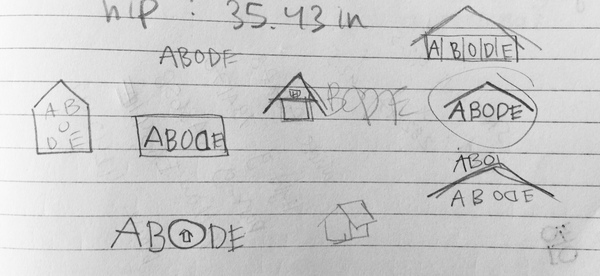 hip : 35.43 in
ABODE
ABODE
ABODE
ABODE
ABODE
ABODE
ABOD
ABODE
ABODE